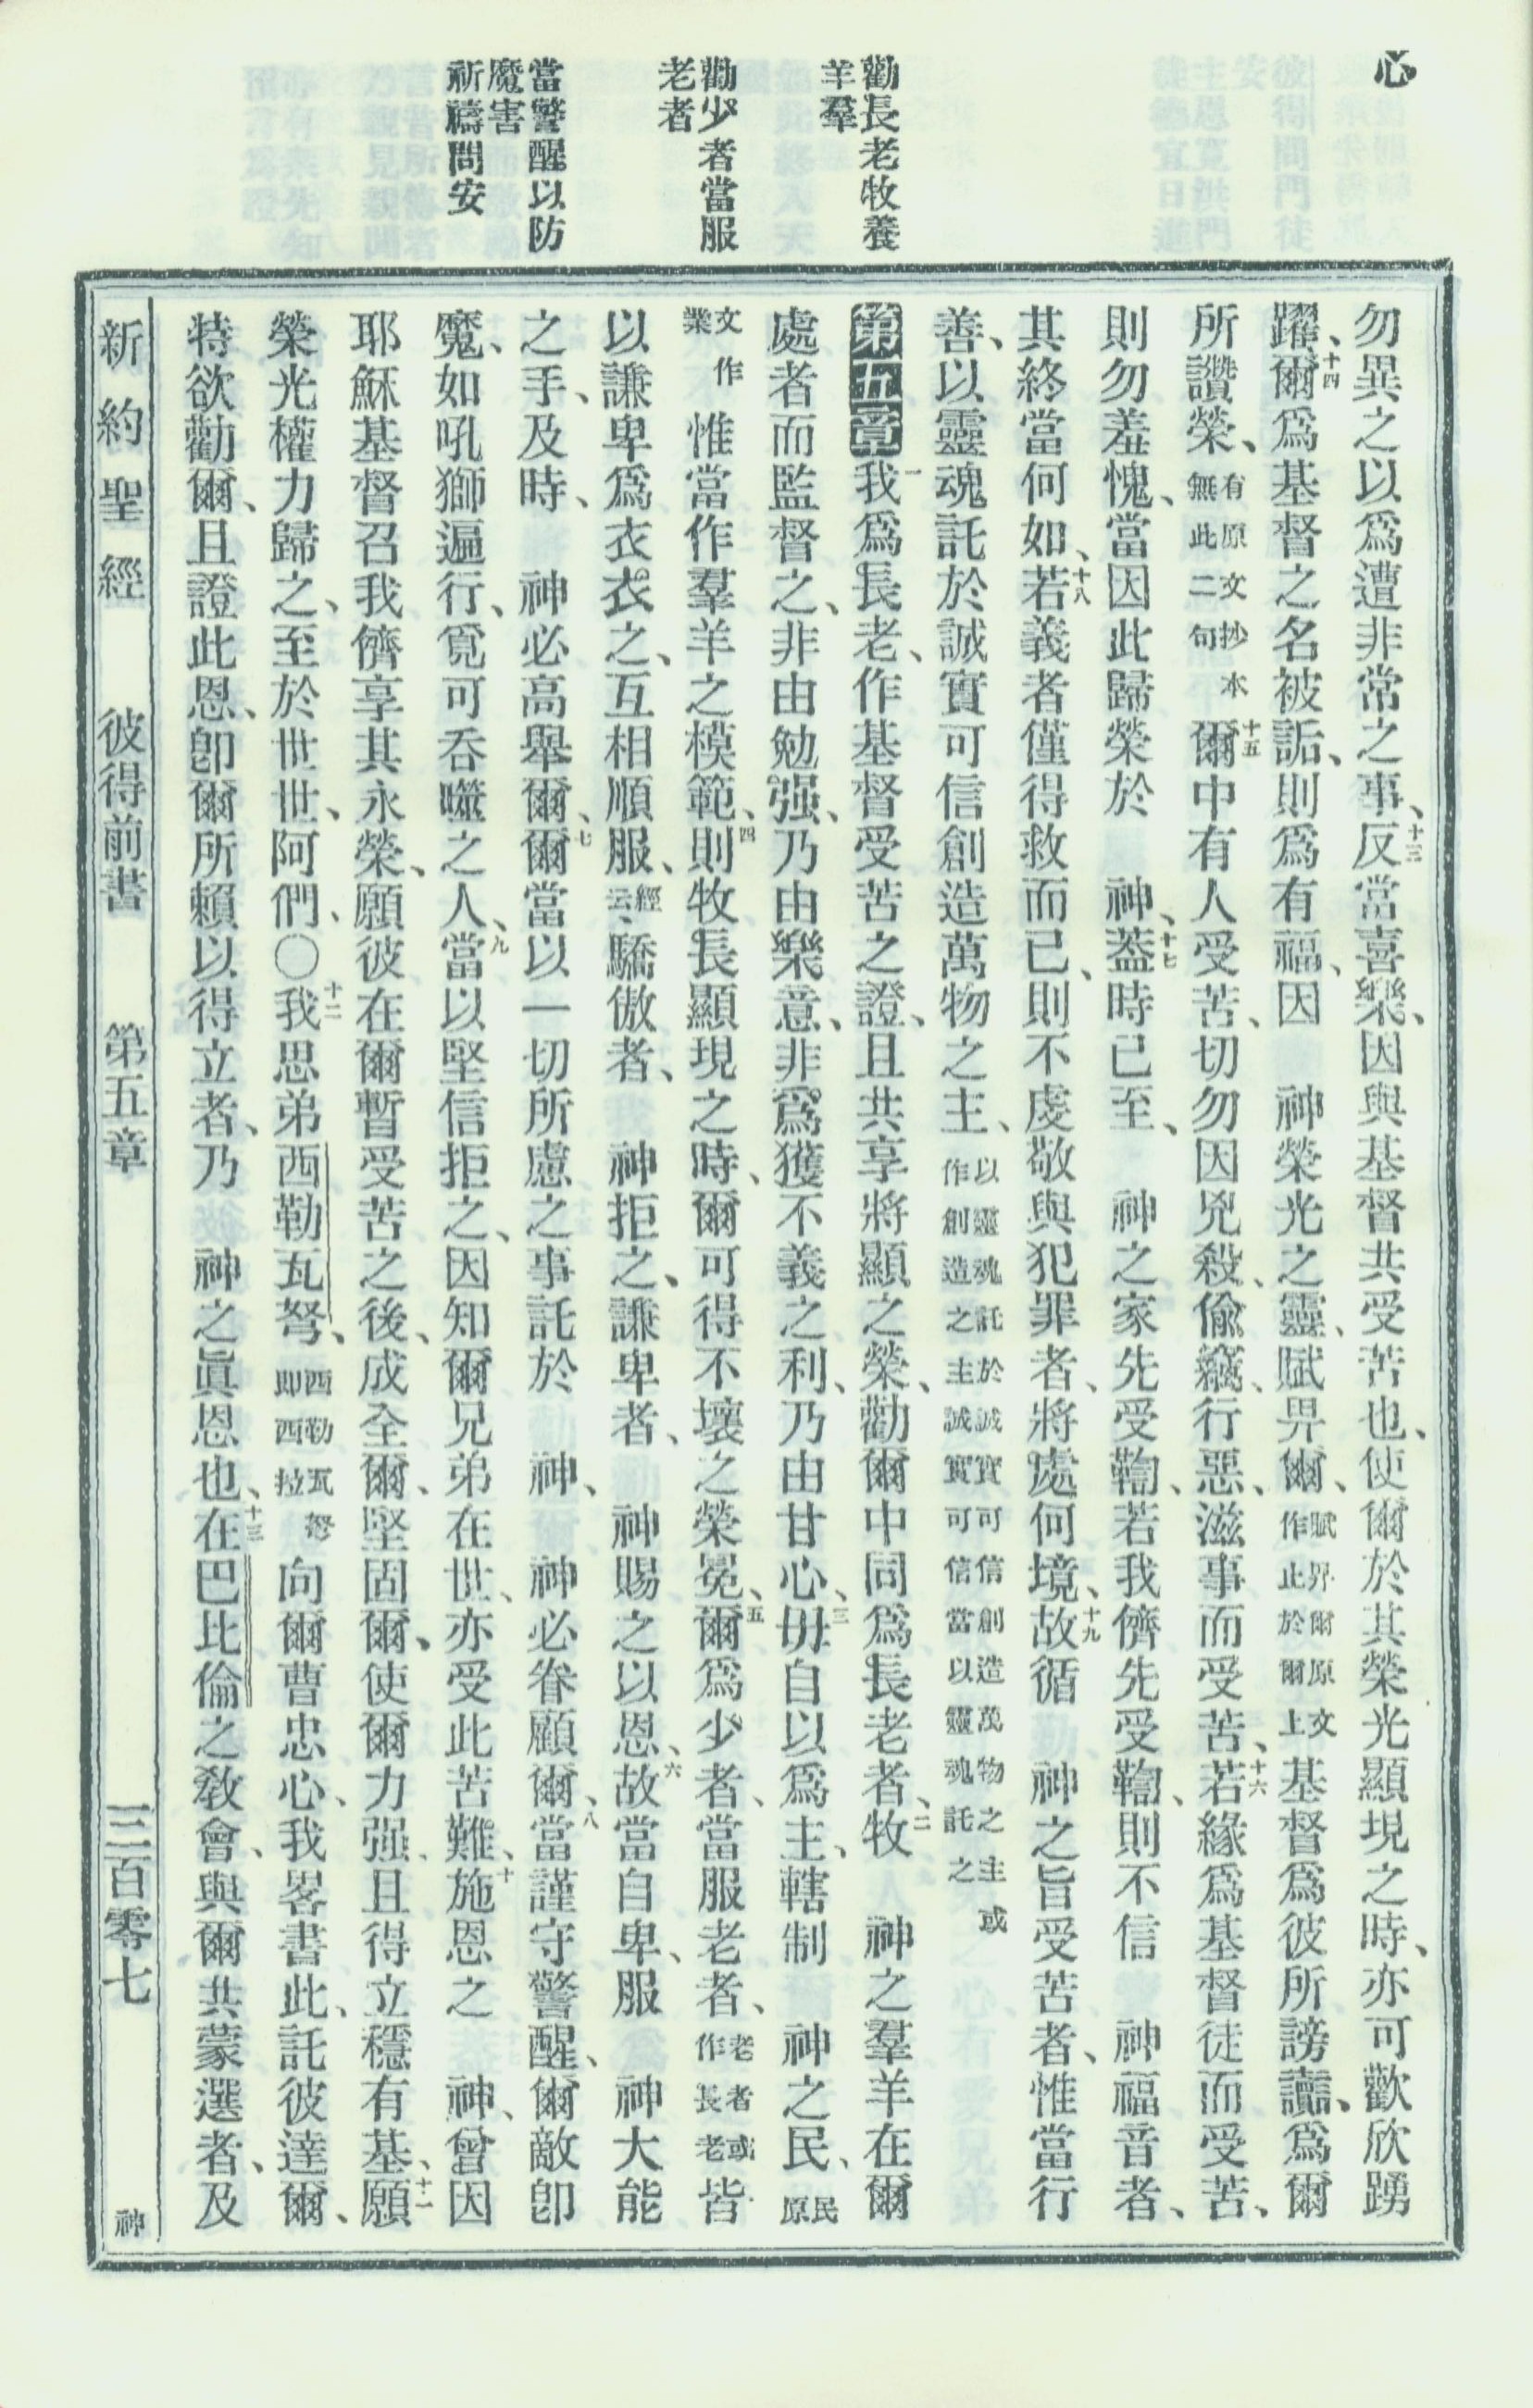 心
勸長老牧養
羊羣
勸少者當服
老者
當警醒以防
魔害
祈禱問安
勿異之以爲遭非常之事、十三反當喜樂、因與基督共受苦也、使爾於其榮光顯現之時、亦可歡欣踴
躍、十四爾爲基督之名被詬、則爲有福、因 神榮光之靈、賦畀爾、賦畀爾原文作止於爾上基督爲彼所謗讟、爲爾
所讚榮、有原文抄本無此二句十五爾中有人受苦、切勿因兇殺、偷竊、行惡、滋事而受苦、十六若緣爲基督徒而受苦、
則勿羞愧、當因此歸榮於 神、十七蓋時已至、 神之家先受鞫、若我儕先受鞫、則不信 神福音者、
其終當何如、十八若義者僅得救而已、則不虔敬與犯罪者、將處何境、十九故循 神之旨受苦者、惟當行
善、以靈魂託於誠實可信創造萬物之主、以靈魂託於誠實可信創造萬物之主或作創造之主誠實可信當以靈魂託之
第五章一我爲長老、作基督受苦之證、且共享將顯之榮、勸爾中同爲長老者、二牧 神之羣羊在爾
處者而監督之、非由勉强、乃由樂意、非爲獲不義之利、乃由甘心、三毋自以爲主、轄制 神之民、民原
文作業惟當作羣羊之模範、四則牧長顯現之時、爾可得不壞之榮冕、五爾爲少者、當服老者、老者或作長老皆
以謙卑爲衣衣之、互相順服、經云、驕傲者、 神拒之、謙卑者、 神賜之以恩、六故當自卑、服 神大能
之手、及時、 神必高舉爾、七爾當以一切所慮之事託於 神、 神必眷顧爾、八當謹守警醒、爾敵卽
魔、如吼獅遍行、覓可吞噬之人、九當以堅信拒之、因知爾兄弟在世、亦受此苦難、十施恩之 神、曾因
耶穌基督召我儕享其永榮、願彼在爾暫受苦之後、成全爾、堅固爾、使爾力强、且得立穩有基、十一願
榮光權力歸之、至於世世、阿們、○十二我思弟西勒瓦弩、西勒瓦弩卽西拉向爾曹忠心、我畧書此、託彼達爾、
特欲勸爾、且證此恩、卽爾所賴以得立者、乃 神之眞恩也、十三在巴比倫之敎會、與爾共蒙選者、及
新約聖經 彼得前書 第五章 三百零七 神